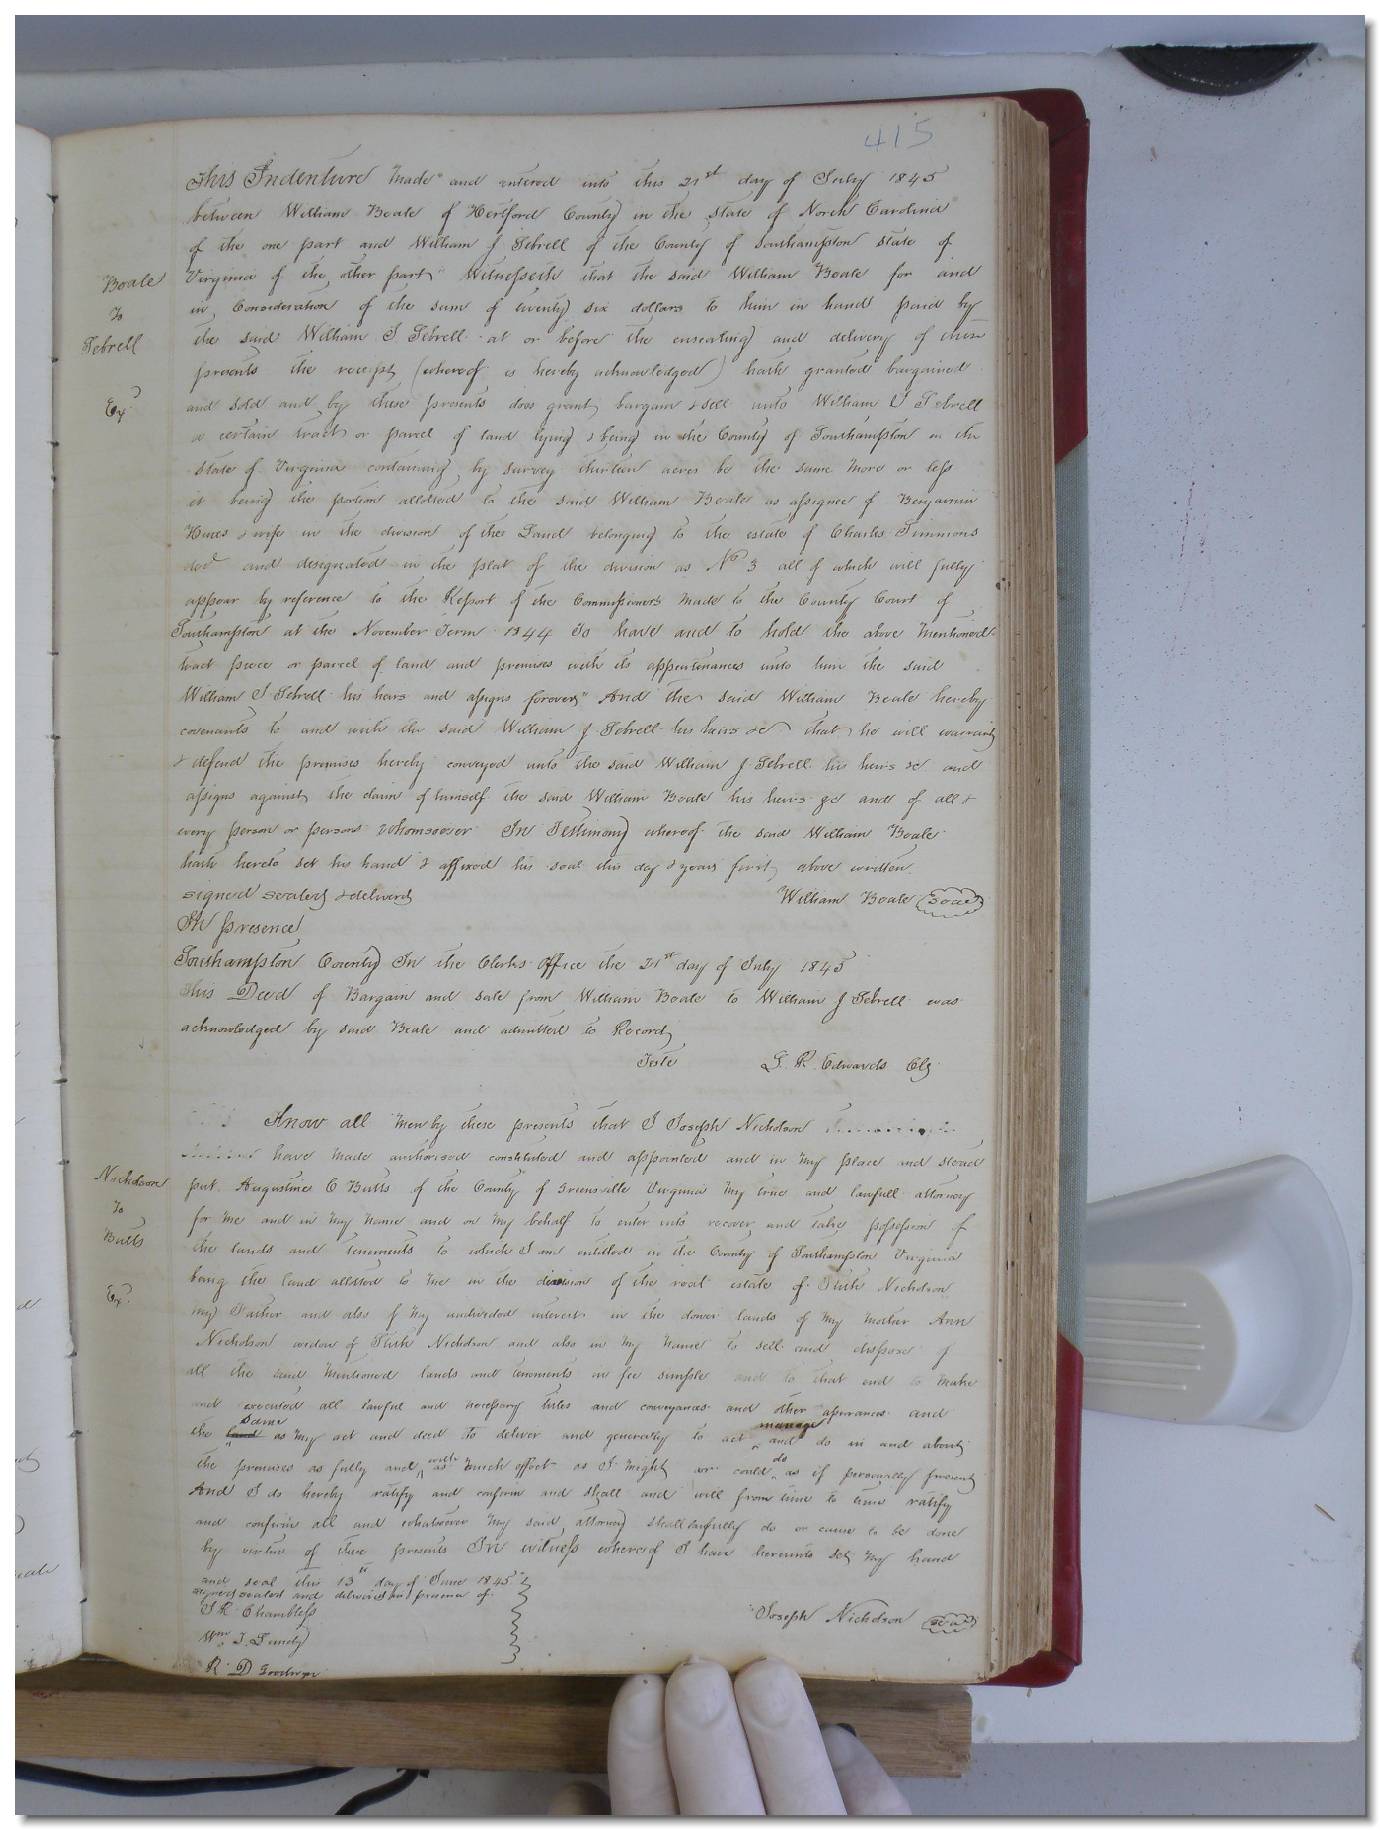 415
This Indenture made and entered into this 21st day of July 1845
between William Beale of Hertford County in the State of North Carolina
of the one part and William J Sebrell of the County of Southampton State of
Virginia of the other part Witnesseth that the said William Beale for and
in Consideration of the sum of twenty six dollars to him in hand paid by
the said William J. Sebrell at or before the ensealing and delivery of these
presents the receipt (whereof is hereby acknowledged) hath granted bargained
and sold and by these presents does grant bargain & sell unto William J Sebrell
a certain tract or parcel of land lying & being in the County of Southampton in the
State of Virginia containing by survey thirteen acres be the same more or less
it being the portion allotted to the said William Beale as assignee of Benjamin
& wife in the division of the Land belonging to the estate of Charles Simmons
decd and designated in the plat of the division as No 3 all of which will fully
appear by reference to the Report of the Commissioners made to the County Court of
Southampton at the November Term 1844 To have and to hold the above mentioned
tract piece or parcel of land and premises with its appurtenances unto him the said
William J Sebrell his heirs and assigns forever And the said William Beale hereby
covenants to and with the said William J Sebrell his heirs &c that he will warrant
& defend the premises hereby conveyed unto the said William J. Sebrell his heirs &c and
assigns against the claim of himself the said William Beale his heirs &c and of all &
every person or persons whomsoever In Testimony whereof the said William Beale
hath hereto set his hand & affixed his seal this day & year first above written.
signed sealed & delivered William Beale Seal
In presence
Southampton County In the Clerks Office the 21st day of July 1845
This Deed of Bargain and sale from William Beale to William J Sebrell was
acknowledged by said Beale and admitted to Record
Teste L. R. Edwards Clk
Beale
To
Sebrell
Ex
Know all men by these presents that I Joseph Nicholson
have made authorised constituted and appointed and in my place and stead
put Augustine C Butts of the County of Greensville Virginia my true and lawfull attorney
for me and in my name and on my behalf to enter into recover and take possession of
the lands and tenements to which I am entitled in the County of Southampton Virginia
being the land allotted to me in the division of the real estate of Nicholson
my Father and also of my undivided interest in the dower lands of my mother Ann
Nicholson widow of Nicholson and also in my name to sell and dispose of
all the said mentioned lands and tenements in fee simple and to that end to make
and executed all lawful and necessary titles and conveyances and other assurances and
the land same as my act and deed to deliver and generally to act manage and do in and about
the premises as fully and with as much effect as I might or could do as if personally present
And I do hereby ratify and confirm and shall and will from time to time ratify
and confirm all and whatsoever my said attorney shall lawfully do or cause to be done
by virtue of these presents In witness whereof I have hereunto set my hand
and seal this 13th day of June 1845
signed sealed and delivered in presence of
J R Chambliss
Joseph Nicholson seal
Wm J. Lundy
R D Goodwyn
Nicholson
To
Butts
Ex.